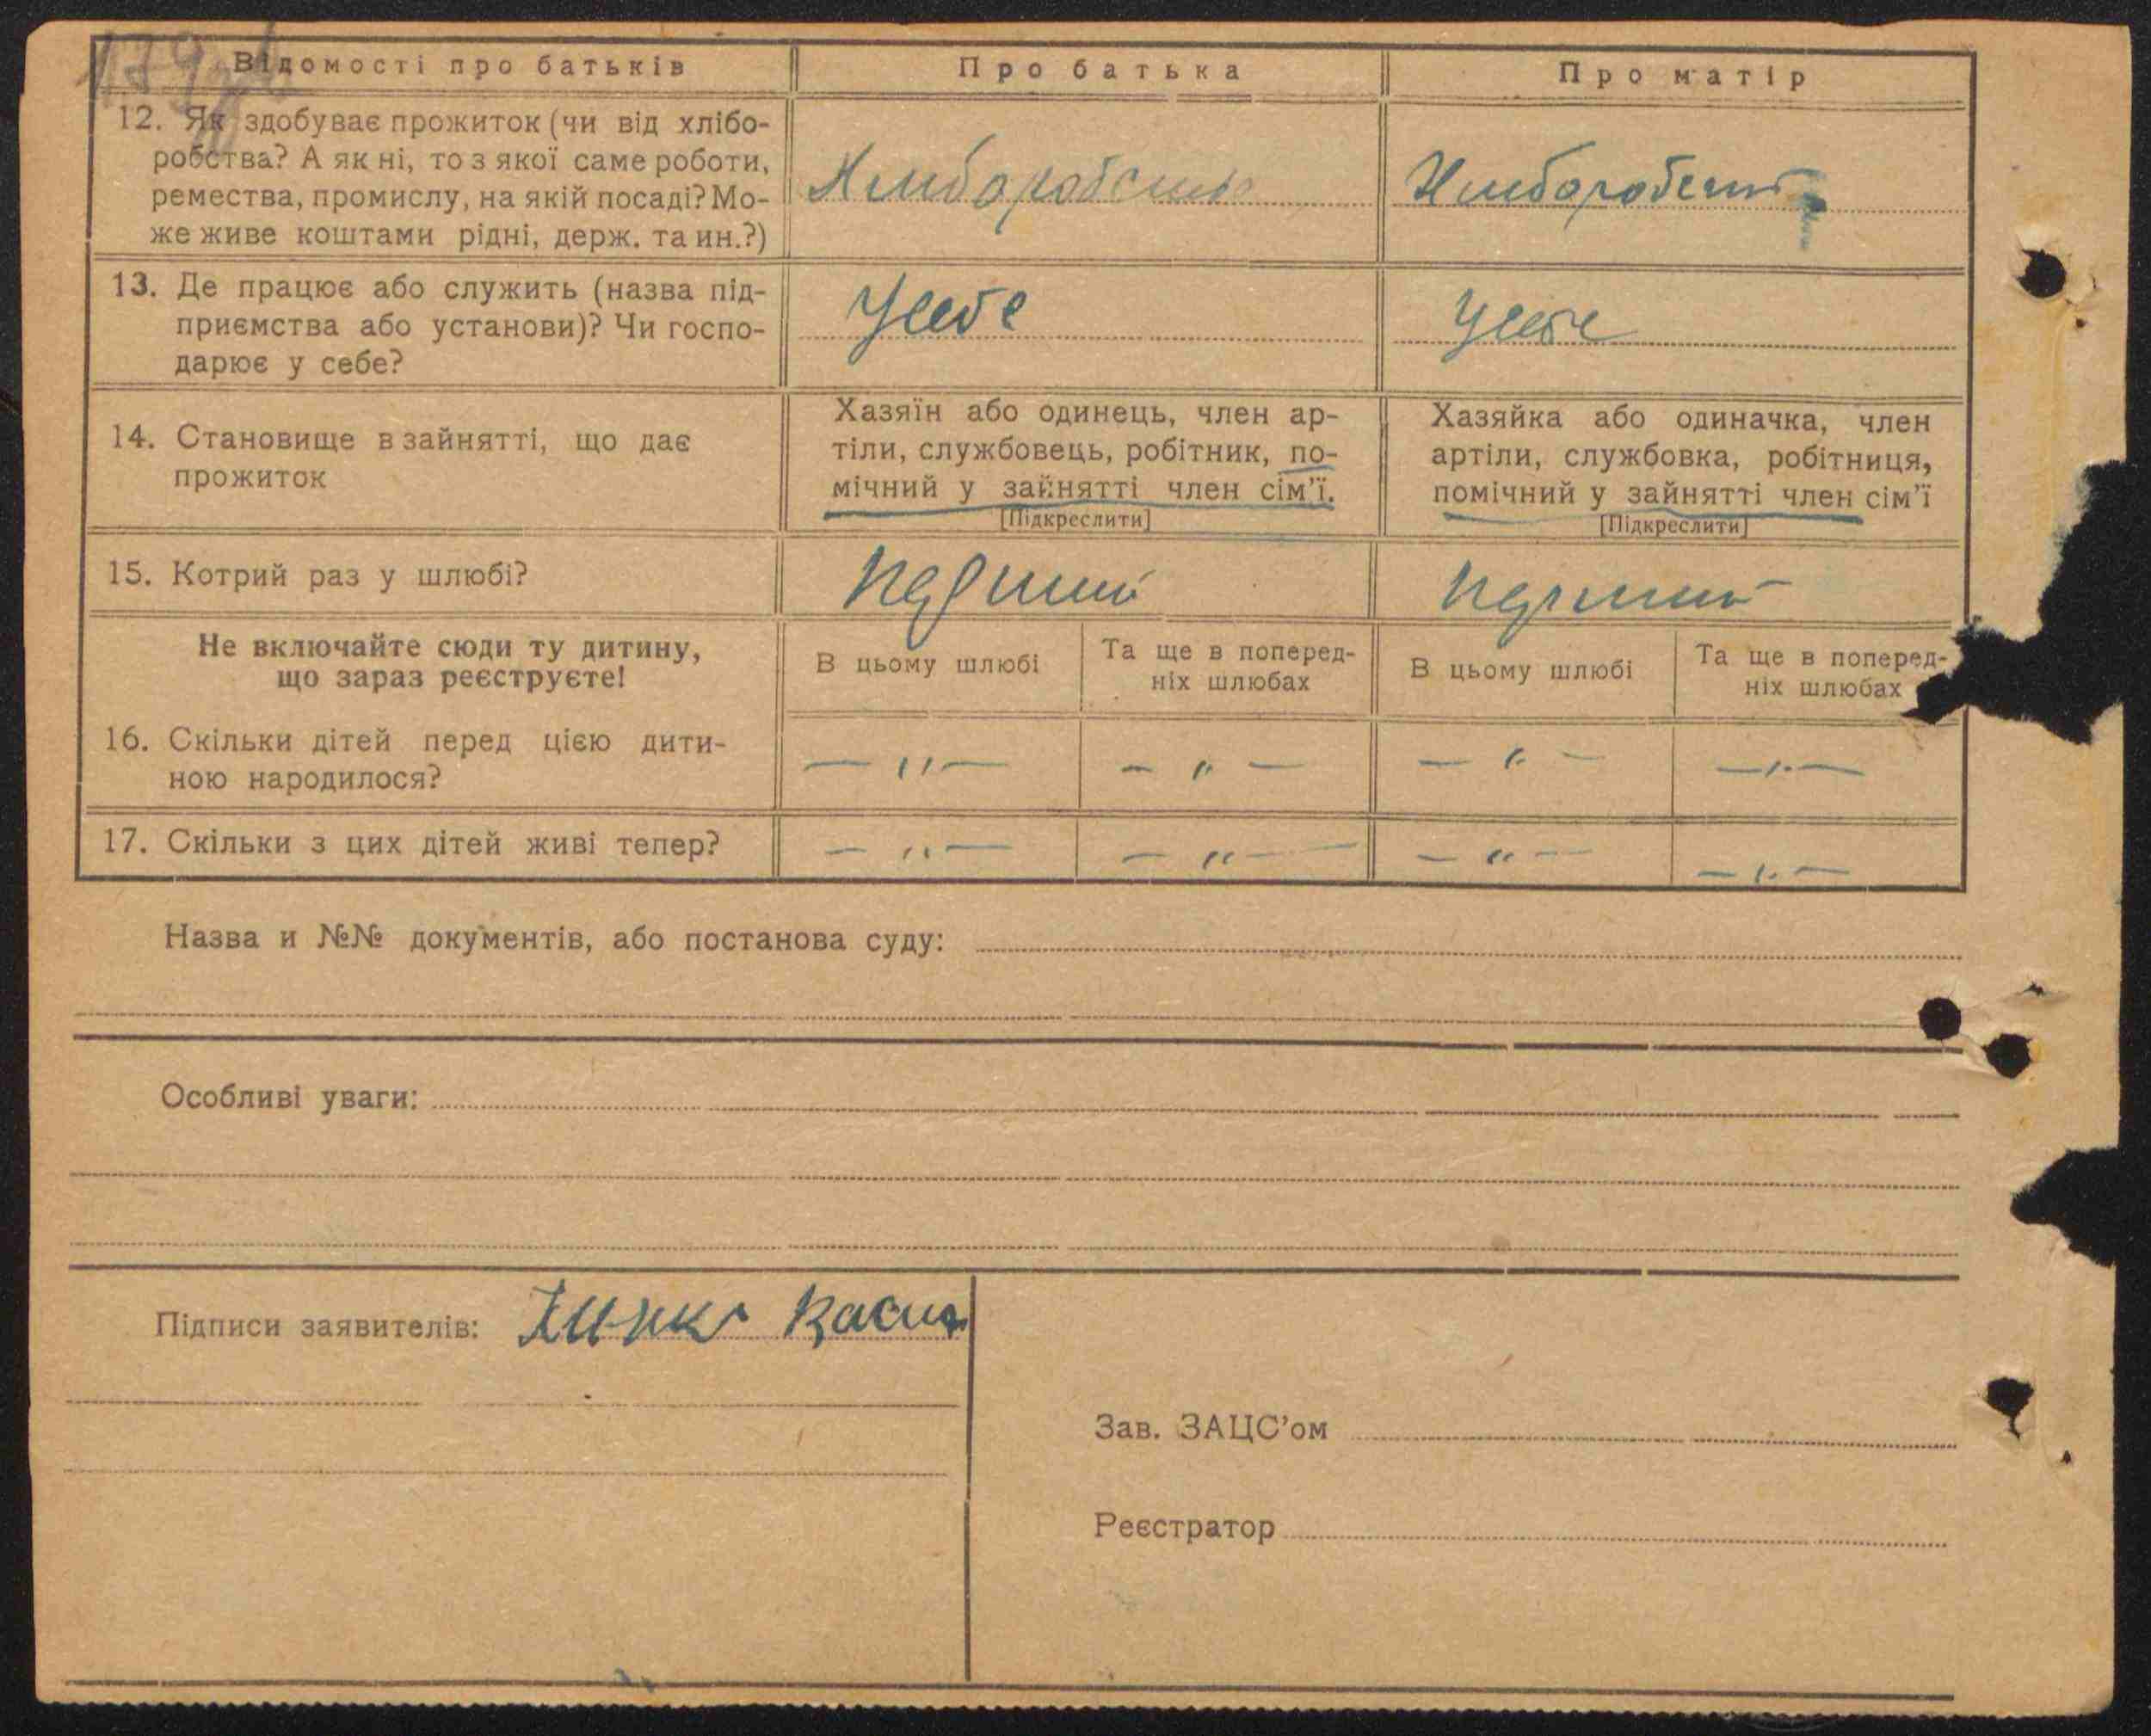 Відомості про батьків
Про батька
Про матір
12. Як здобуває прожиток (чи від хлібо-
робства? А як ні, то з якої саме роботи,
ремества, промислу, на якій посаді? Мо-
же живе коштами рідні, держ. та ин.?)
Хлиборобство
Хлиборобство
13. Де працює або служить (назва під-
приємства або установи)? Чи госпо-
дарює у себе?
У себе
У себе
14. Становище в зайнятті, що дає
прожиток
Хазяїн або одинець, член ар-
тіли, службовець, робітник, по-
мічний у зайнятті член сім'ї.
[Підкреслити]
Хазяйка або одиначка, член
артіли, службовка, робітниця,
помічний у зайнятті член сім'ї
[Підкреслити]
15. Котрий раз у шлюбі?
Перший
Перший
Не включайте сюди ту дитину,
що зараз реєструєте!
В цьому шлюбі
Та ще в поперед-
ніх шлюбах
В цьому шлюбі
Та ще в поперед-
ніх шлюбах
16. Скільки дітей перед цією дити-
ною народилося?
— " —
— " —
— " —
— " —
17. Скільки з цих дітей живі тепер?
— " —
— " —
— " —
— " —
Назва и №№ документів, або постанова суду:
Особливі уваги:
Підписи заявителів:
Зав. ЗАЦС'ом
Реєстратор